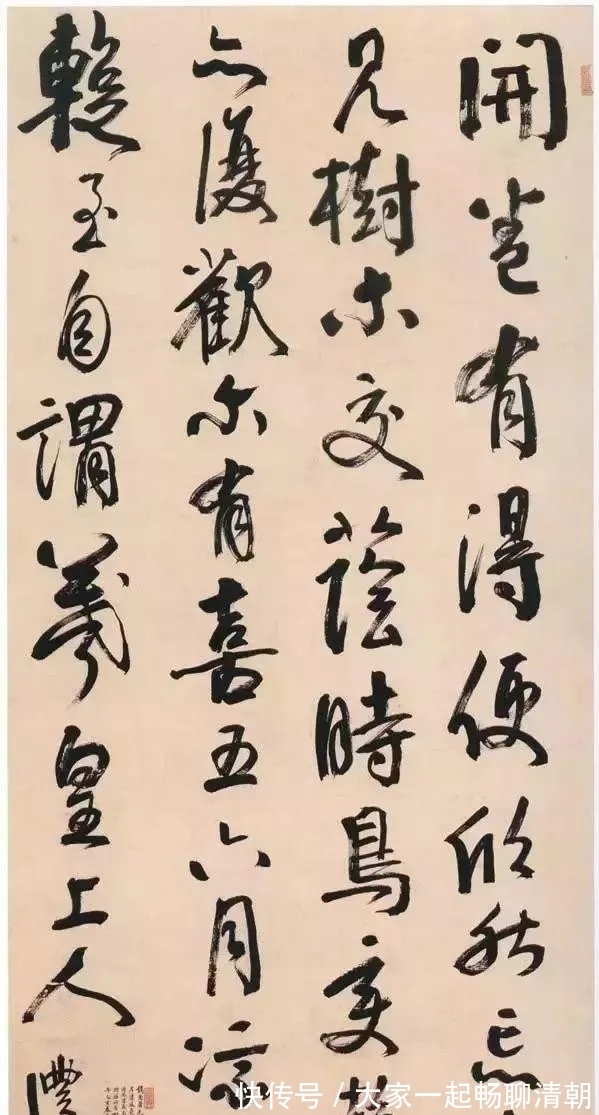 開卷有得便欣然忘
見樹木交蔭時鳥變
亦復歡尔有喜五六月涼
蹔至自謂羲皇上人
快传号 / 大家一起畅聊清朝